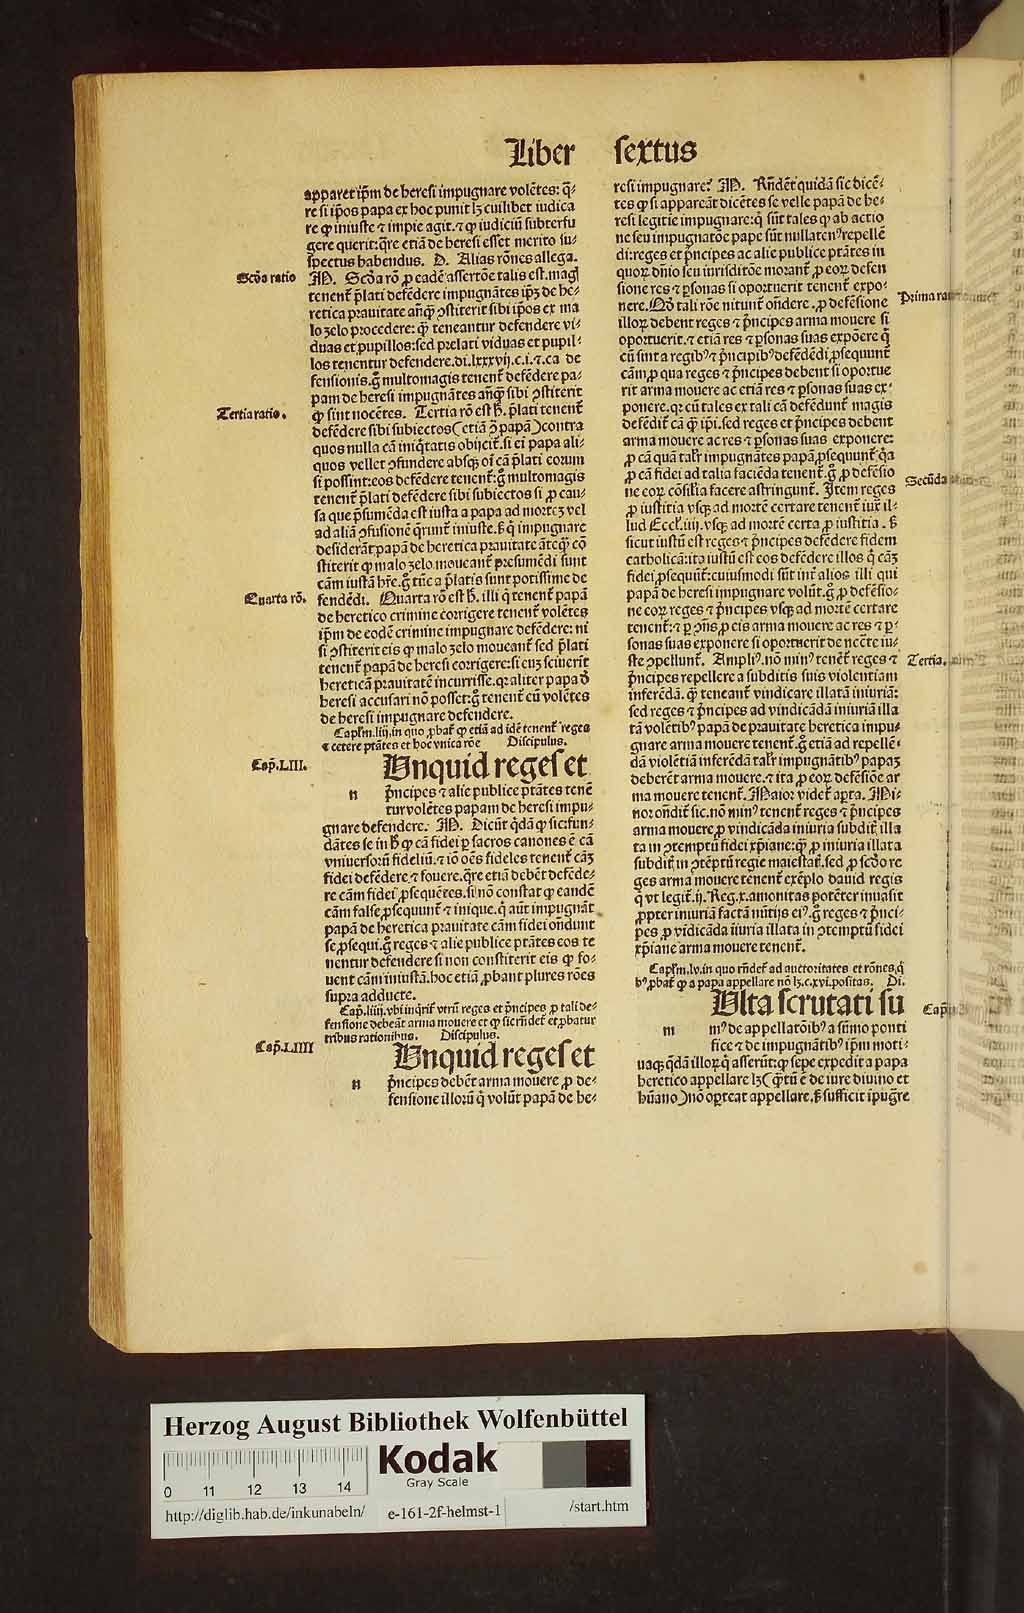 Liber sextus
apparet ip̄m de heresi impugnare volētes: q̄-
re si ip̄os papa ex hoc punit lꝫ cuilibet iudica
re ꝙ iniuste ⁊ impie agit. ⁊ ꝙ iudiciū subterfu
gere querit: q̄re etiā de heresi esset merito su-
spectus habendus. D. Alias rōnes allega.
Scd̄a ratio
M. Scd̄a rō ꝓ eadē assertōe talis est. magꝭ
tenent̄ p̄lati defēdere impugnātes ip̄ꝫ de he-
retica prauitate añqꝫ ꝯstiterit sibi ip̄os ex ma
lo zelo procedere: qꝫ teneantur defendere vi-
duas et pupillos: sed prelati viduas et pupil-
los tenentur defendere. di. lxxxvij. c. i. ⁊. ca de
fensionis. g̊ multomagis tenent̄ defēdere pa-
pam de heresi impugnātes añqꝫ sibi ꝯstiterit
Tertia ratio.
ꝙ sint nocētes. Tertia rō est h̄. p̄lati tenent̄
defēdere sibi subiectos (etiā ꝯ papā) contra
quos nulla cā iniq̄tatis obijcit̄. si em̄ papa ali-
quos vellet ꝯfundere absqꝫ oī cā p̄lati eorum
si possint: eos defēdere tenent̄: g̊ multomagis
tenent̄ p̄lati defēdere sibi subiectos si ꝓ cau-
sa que p̄sumēda est iusta a papa ad mortez vel
ad aliā ꝯfusionē q̄runt̄ iniuste. sꝫ q̄ impugnare
desiderāt papā de heretica prauitate āteqꝫ cō
stiterit ꝙ malo zelo moueant̄ presumēdi sunt
cām iustā hr̄e. g̊ tūc a p̄latis sunt potissime de
Quarta rō.
fendēdi. Quarta rō est h̄. illi q̄ tenent̄ papā
de heretico crimine corrigere tenent̄ volētes
ip̄m de eodē crimine impugnare defēdere: ni
si ꝯstiterit eis ꝙ malo zelo moueant̄ sed p̄lati
tenent̄ papā de heresi corrigere: si euꝫ sciuerit
hereticā prauitatē incurrisse. qꝛ aliter papa d̄
heresi accusari nō posset: g̊ tenent̄ cū volētes
de heresi impugnare defendere.
Capl̄m. liij. in quo ꝓbat̄ ꝙ etiā ad idē tenent̄ reges
⁊ cetere ptātes et hoc vnica rōe Discipulus.
Cap̄. LIII.
Vnquid reges et
n p̄ncipes ⁊ alie publice ptātes tenē
tur volētes papam de heresi impu-
gnare defendere. M. Dicūt q̄dā ꝙ sic: fun-
dātes se in h̄ ꝙ cā fidei ꝑ sacros canones ē cā
vniuersorū fideliū. ⁊ iō oēs fideles tenent̄ cāꝫ
fidei defēdere, ⁊ fouere. q̄re etiā debēt defēde-
re cām fidei ꝓsequētes. si nō constat ꝙ eandē
cām false ꝓsequunt̄ ⁊ inique. q̄ aūt impugnāt
papā de heretica prauitate cām fidei on̄dunt
se ꝓsequi. g̊ reges ⁊ alie publice ptātes eos te
nentur defendere si non constiterit eis ꝙ fo-
uent cām iniustā. hoc etiā ꝓbant plures rōes
supra adducte.
Cap̄. liiij. vbi inq̄rit̄ vtrū reges et p̄ncipes ꝓ tali de-
fensione debeāt arma mouere et ꝙ sic rn̄det̄ et ꝓbatur
tribus rationibus. Discipulus.
Cap̄. LIIII
Vnquid reges et
n p̄ncipes debēt arma mouere ꝓ de-
fensione illorū q̄ volūt papā de he-
resi impugnare? M. Rn̄dēt quidā sic dicē-
tes ꝙ si appareāt dicētes se velle papā de he-
resi legitie impugnare: q̄ sūt tales ꝙ ab actio
ne seu impugnatōe pape sūt nullaten⁹ repellē
di: reges et p̄ncipes ac alie publice ptātes in
quoꝝ dn̄io seu iurisditōe morant̄ ꝓ eoꝝ defen
sione res ⁊ ꝑsonas si oportuerit tenent̄ expo-
Prima ra
nere. Qd̄ tali rōe nitunt̄ on̄dere. ꝓ defēsione
illoꝝ debent reges ⁊ p̄ncipes arma mouere si
oportuerit. ⁊ etiā res ⁊ ꝑsonas suas expōere q̄
cū sint a regib⁹ ⁊ p̄ncipib⁹ defēdēdi ꝓsequunt̄
cām, ꝓ qua reges ⁊ p̄ncipes debent si oportue
rit arma mouere ac etiā res ⁊ ꝑsonas suas ex-
ponere. qꝛ cū tales ex tali cā defēdunt̄ magis
defēdit̄ cā qꝫ ip̄i. sed reges et p̄ncipes debent
arma mouere ac res ⁊ ꝑsonas suas exponere:
ꝓ cā quā tal̄r impugnātes papā ꝓsequunt̄. q̄a
ꝓ cā fidei ad talia faciēda tenent̄. g̊ ꝓ defēsio
Secūda
ne eoꝝ cōsil̄ia facere astringunt̄. Item reges
ꝓ iustitia vsqꝫ ad mortē certare tenent̄ iux̄ il-
lud Eccl̄. iiij. vsqꝫ ad mortē certa ꝓ iustitia. sꝫ
sicut iustū est reges ⁊ p̄ncipes defēdere fidem
catholicā: ita iustū est eos defēdere illos q̄ cāꝫ
fidei ꝓsequunt̄: cuiusmodi sūt int̄ alios illi qui
papā de heresi impugnare volūt. g̊ ꝓ defēsio-
ne eoꝝ reges ⁊ p̄ncipes vsqꝫ ad mortē certare
tenent̄: ⁊ ꝑ ꝯn̄s ꝓ eis arma mouere ac res ⁊ ꝑ-
sonas suas exponere si oportuerit de necē̄te iu-
Tertia.
ste ꝯpellunt̄. Ampli⁹. nō min⁹ tenent̄ reges ⁊
p̄ncipes repellere a subditis suis violentiam
inferēdā. qꝫ teneant̄ vindicare illatā iniuriā:
sed reges ⁊ p̄ncipes ad vindicādā iniuriā illa
tā volētib⁹ papā de prauitate heretica impu-
gnare arma mouere tenent̄. g̊ etiā ad repellē-
dā violētiā inferēdā tal̄r impugnātib⁹ papaꝫ
deberēt arma mouere. ⁊ ita ꝓ eoꝝ defēsiōe ar
ma mouere tenent̄. Maior videt̄ apta. Mi-
nor on̄dit̄ sic. nō min⁹ tenent̄ reges ⁊ p̄ncipes
arma mouere ꝓ vindicāda iniuria subditꝭ illa
ta in ꝯtemptū fidei xp̄iane: qꝫ ꝓ iniuria illata
subditꝭ in ꝯtēptū regie maiestatꝭ. sed ꝓ scd̄o re
ges arma mouere tenent̄ exēplo dauid regis
q̄ vt legit̄. ij. Reg. x. amonitas potēter inuasit
ꝓpter iniuriā factā nūtijs ei⁹. g̊ reges ⁊ p̄nci-
pes ꝓ vīdicāda iīuria illata in ꝯtemptū fidei
xp̄iane arma mouere tenent̄.
Capl̄m. lv. in quo rn̄det̄ ad auctoritates et rōnes, q̄
b⁹ ꝓbat̄ ꝙ a papa appellare nō lꝫ. c. xvi. positas. Di.
Cap̄
Vlta scrutati su
m m⁹ de appellatōib⁹ a sūmo ponti
fice ⁊ de impugnātib⁹ ip̄m moti-
uaqꝫ q̄dā illoꝝ q̄ asserūt: ꝙ sepe expedit a papa
heretico appellare lꝫ (qꝫtū ē de iure diuino et
hūano) nō oꝑteat appellare. sꝫ sufficit īpugn̄re
Herzog August Bibliothek Wolfenbüttel
0 11 12 13 14
Kodak
Gray Scale
http://diglib.hab.de/inkunabeln/ e-161-2f-helmst-1 /start.htm